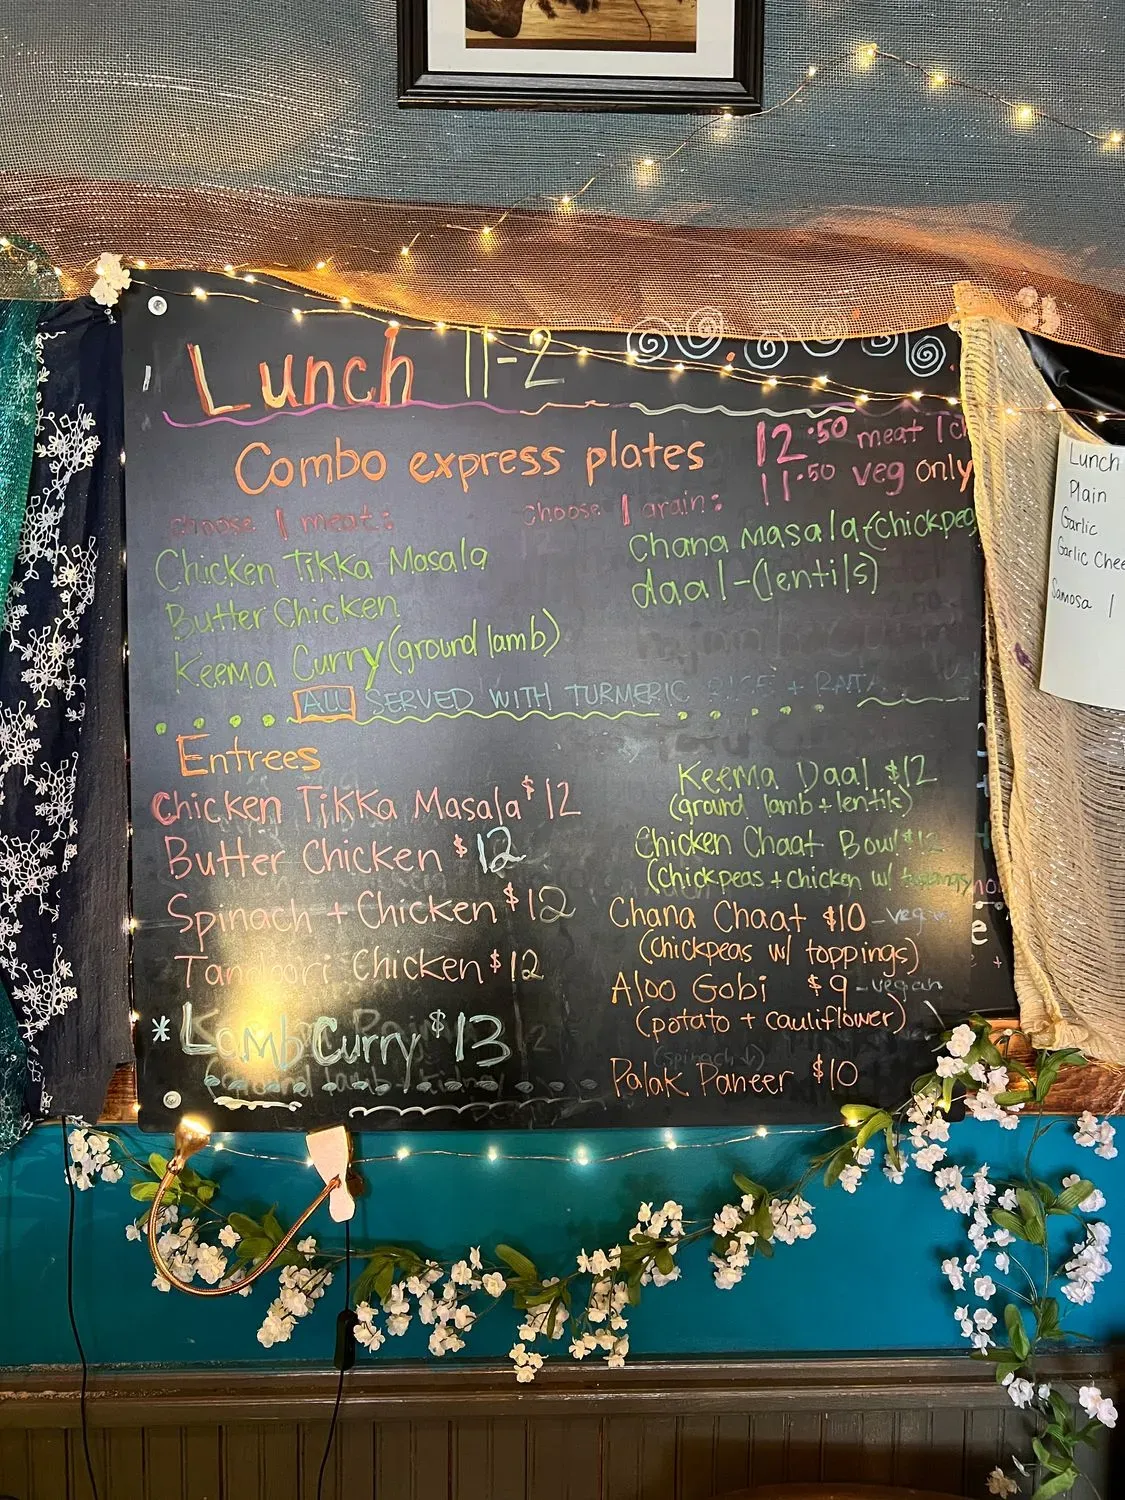 Lunch 11-2
Combo express plates
12.50 meat
11.50 veg only
choose 1 meat:
choose 1 grain:
Chicken Tikka Masala
Butter Chicken
Keema Curry (ground lamb)
Chana Masala-(chickpea
daal-(lentils)
ALL SERVED WITH TURMERIC RICE + RAITA
Entrees
Chicken Tikka Masala $12
Butter Chicken $12
Spinach + Chicken $12
Tandoori Chicken $12
* Lamb Curry $13
Keema Daal $12
(ground lamb + lentils)
Chicken Chaat Bowl $12
(Chickpeas + chicken w/ toppings
Chana Chaat $10 - vegan
(chickpeas w/ toppings)
Aloo Gobi $9 - vegan
(potato + cauliflower)
(spinach ↓)
Palak Paneer $10
Lunch
Plain
Garlic
Garlic Chee
Samosa 1